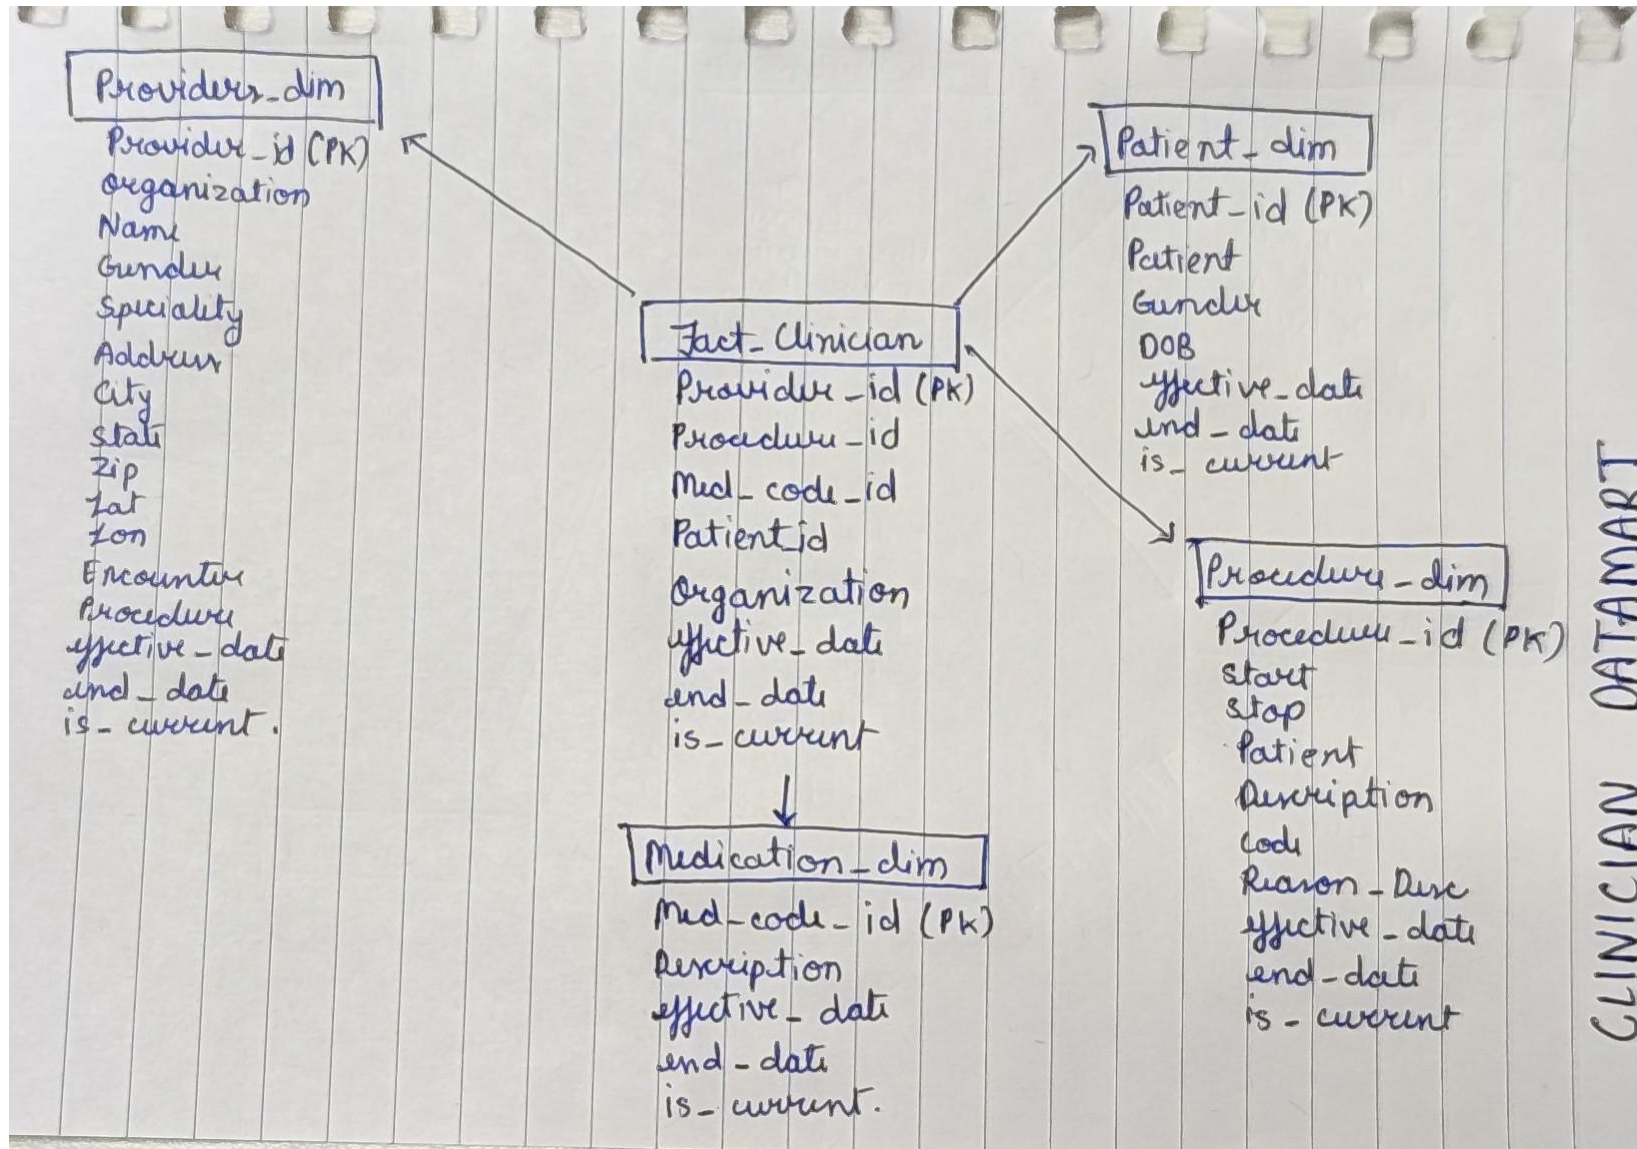 Providers_dim
Provider_id (PK)
Organization
Name
Gender
Speciality
Address
City
State
Zip
Lat
Lon
Encounter
Procedure
effective_date
end_date
is_current.
Fact_Clinician
Provider_id (PK)
Procedure_id
Med_code_id
Patient_id
Organization
effective_date
end_date
is_current
Medication_dim
Med_code_id (PK)
Description
effective_date
end_date
is_current.
Patient_dim
Patient_id (PK)
Patient
Gender
DOB
effective_date
end_date
is_current
Procedure_dim
Procedure_id (PK)
Start
Stop
Patient
Description
Code
Reason_Desc
effective_date
end_date
is_current
CLINICIAN DATAMART